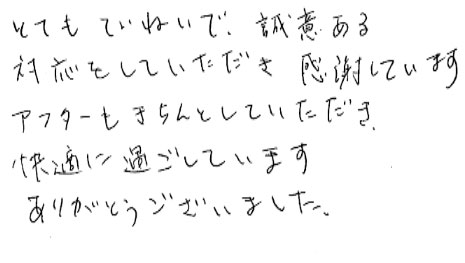 とても ていねいで、誠意ある
対応をしていただき 感謝しています
アフターもきちんとしていただき、
快適に過ごしています
ありがとうございました。